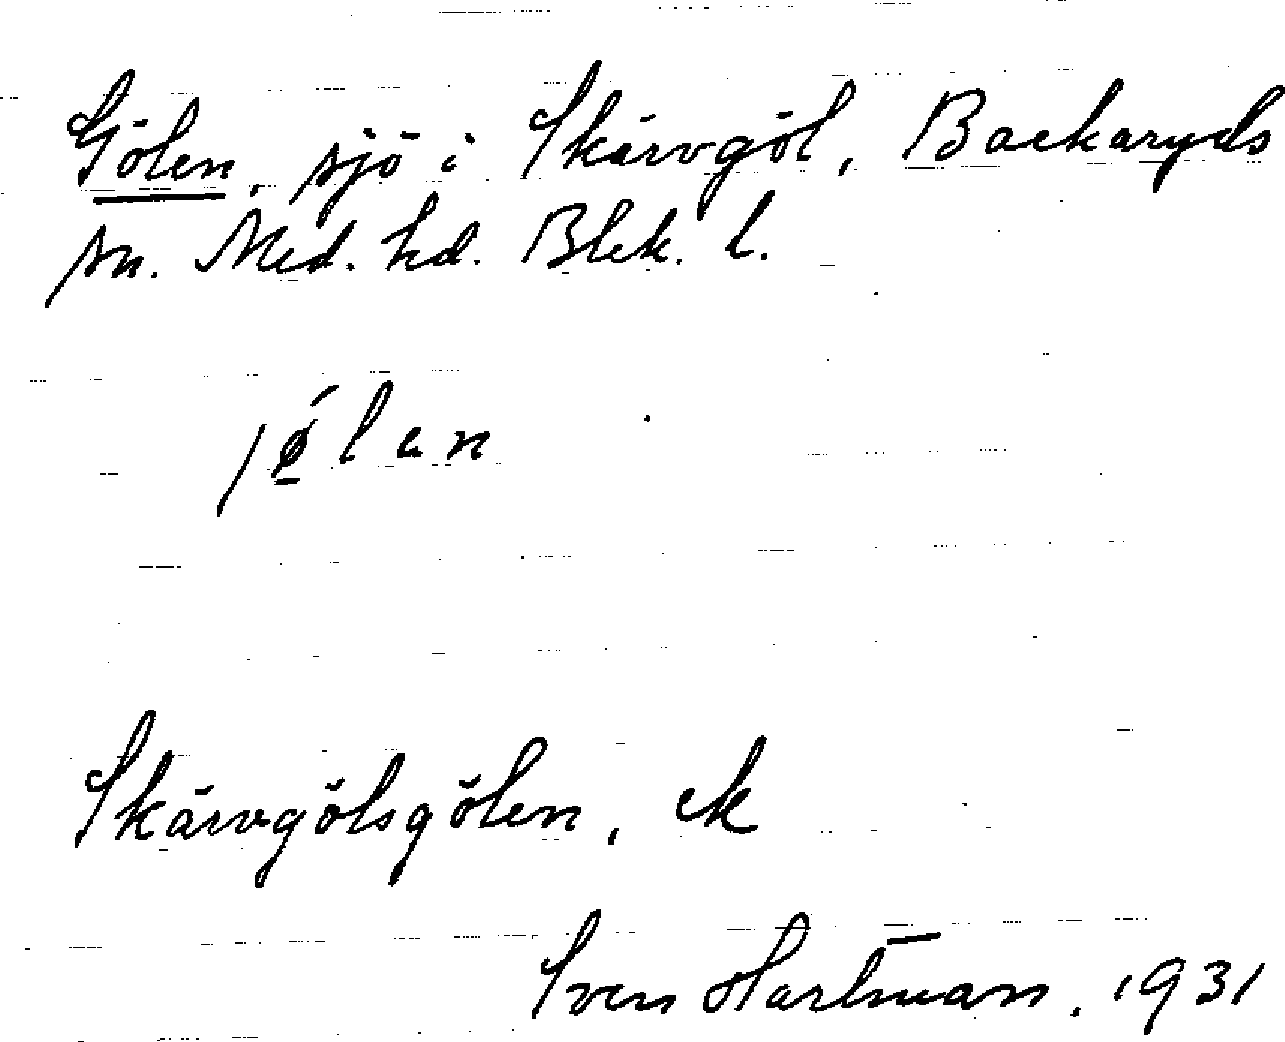 Gölen, sjö i Skärvgöl, Backaryds
sn. Med. hd. Blek. l.
Skärvgölsgölen, ek
Sven Hartman, 1931